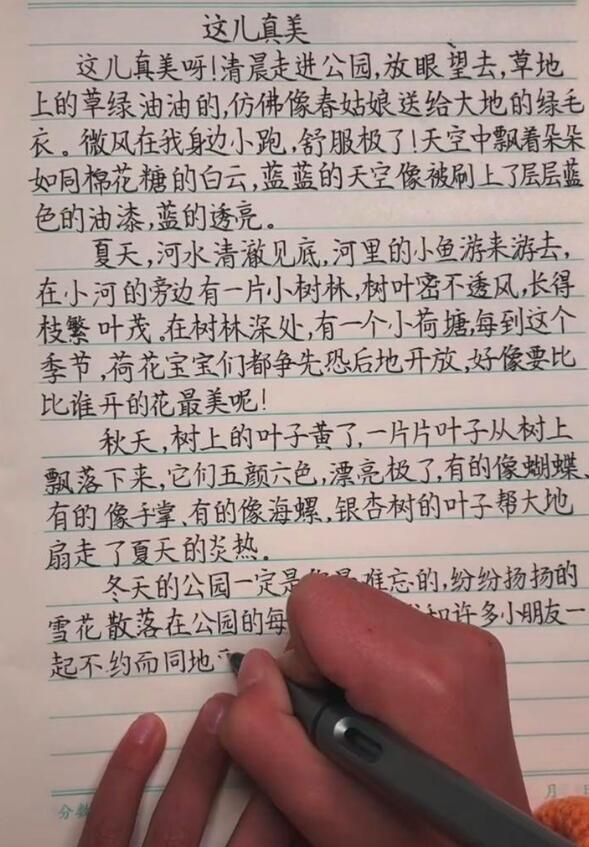 这儿真美
这儿真美呀！清晨走进公园，放眼望去，草地
上的草绿油油的，仿佛像春姑娘送给大地的绿毛
衣。微风在我身边小跑，舒服极了！天空中飘着朵朵
如同棉花糖的白云，蓝蓝的天空像被刷上了层层蓝
色的油漆，蓝的透亮。
夏天，河水清澈见底，河里的小鱼游来游去，
在小河的旁边有一片小树林，树叶密不透风，长得
枝繁叶茂。在树林深处，有一个小荷塘，每到这个
季节，荷花宝宝们都争先恐后地开放，好像要比
比谁开的花最美呢！
秋天，树上的叶子黄了，一片片叶子从树上
飘落下来，它们五颜六色，漂亮极了，有的像蝴蝶、
有的像手掌、有的像海螺，银杏树的叶子帮大地
扇走了夏天的炎热。
冬天的公园一定是难忘的，纷纷扬扬的
雪花散落在公园的每和许多小朋友一
起不约而同地
分数 月